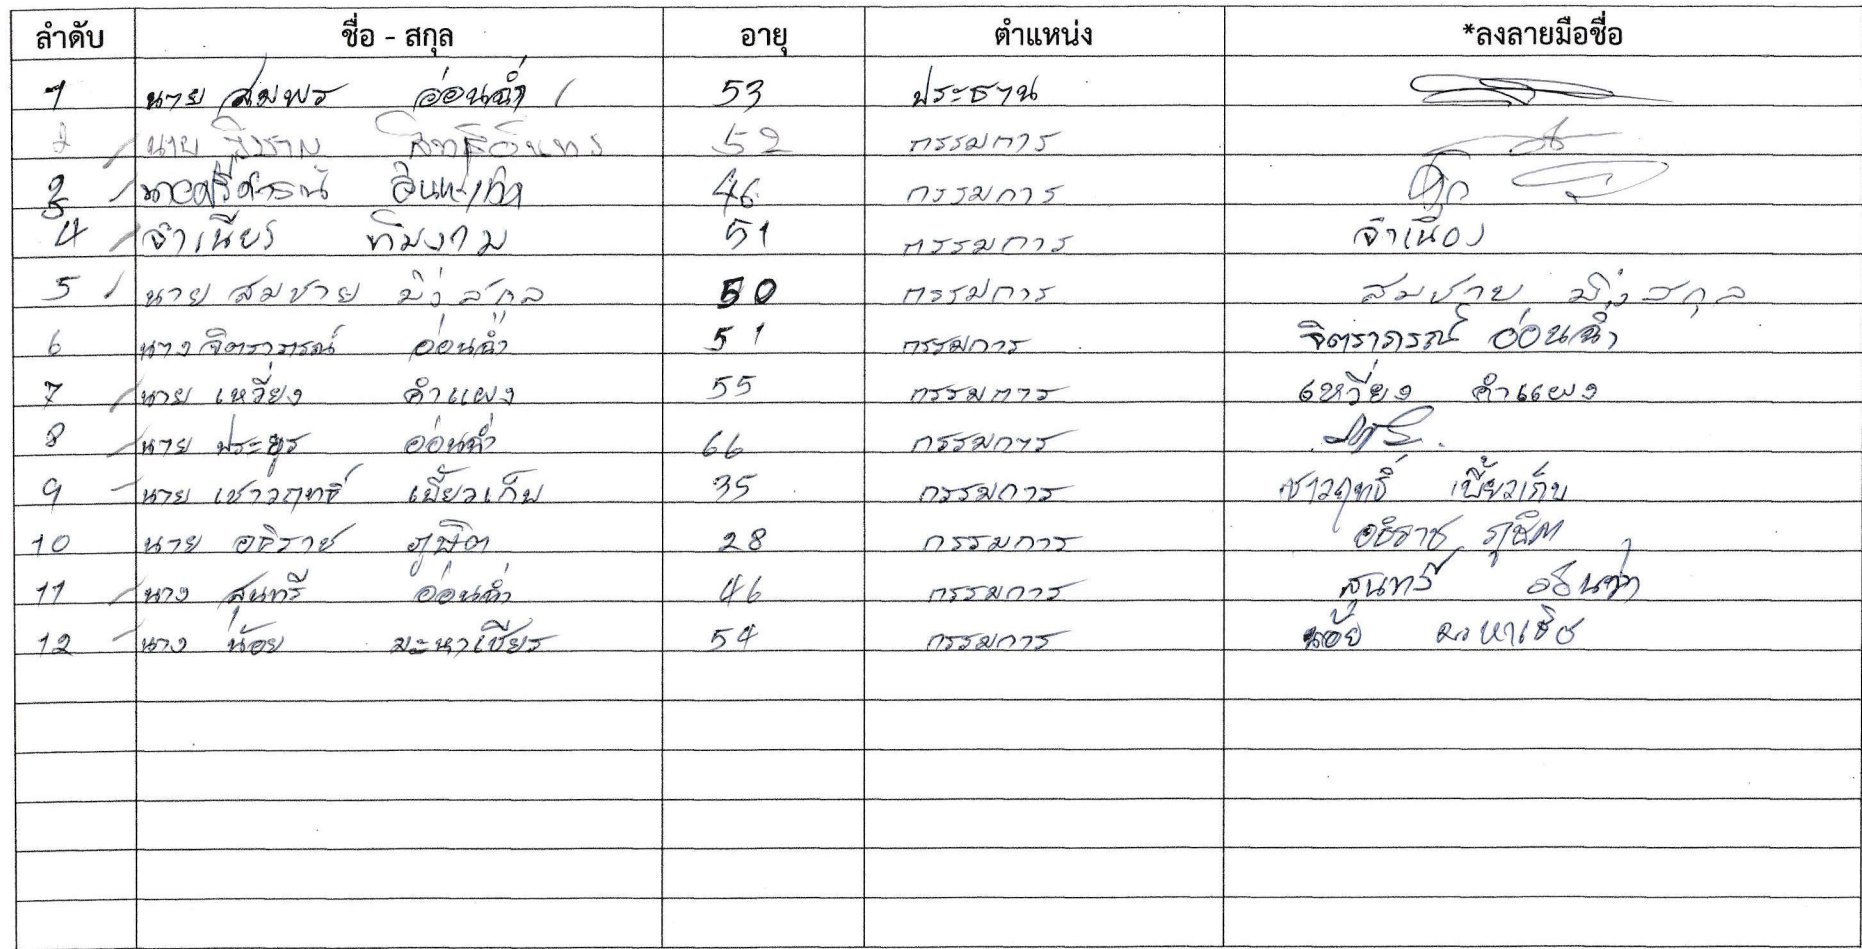 ลำดับ ชื่อ - สกุล อายุ ตำแหน่ง *ลงลายมือชื่อ
1 นาย สมพร อ่อนฉ่ำ 53 ประธาน
2 นาย 52 กรรมการ
3 46 กรรมการ
4 จำเนียร ทิมงาม 51 กรรมการ จำเนียร
5 นาย สมชาย มิ่งสกุล 50 กรรมการ สมชาย มิ่งสกุล
6 นาง จิตราภรณ์ อ่อนฉ่ำ 51 กรรมการ จิตราภรณ์ อ่อนฉ่ำ
7 นาย เหวี่ยง คำแผง 55 กรรมการ เหวี่ยง คำแผง
8 นาย ประยูร อ่อนฉ่ำ 66 กรรมการ
9 นาย เชาวฤทธิ์ เบี้ยวเก็บ 35 กรรมการ เชาวฤทธิ์ เบี้ยวเก็บ
10 นาย อธิราช ภูษิต 28 กรรมการ อธิราช ภูษิต
11 นาง สุนทรี อ่อนฉ่ำ 46 กรรมการ สุนทรี
12 นาง น้อย มะหาเชียร 54 กรรมการ น้อย